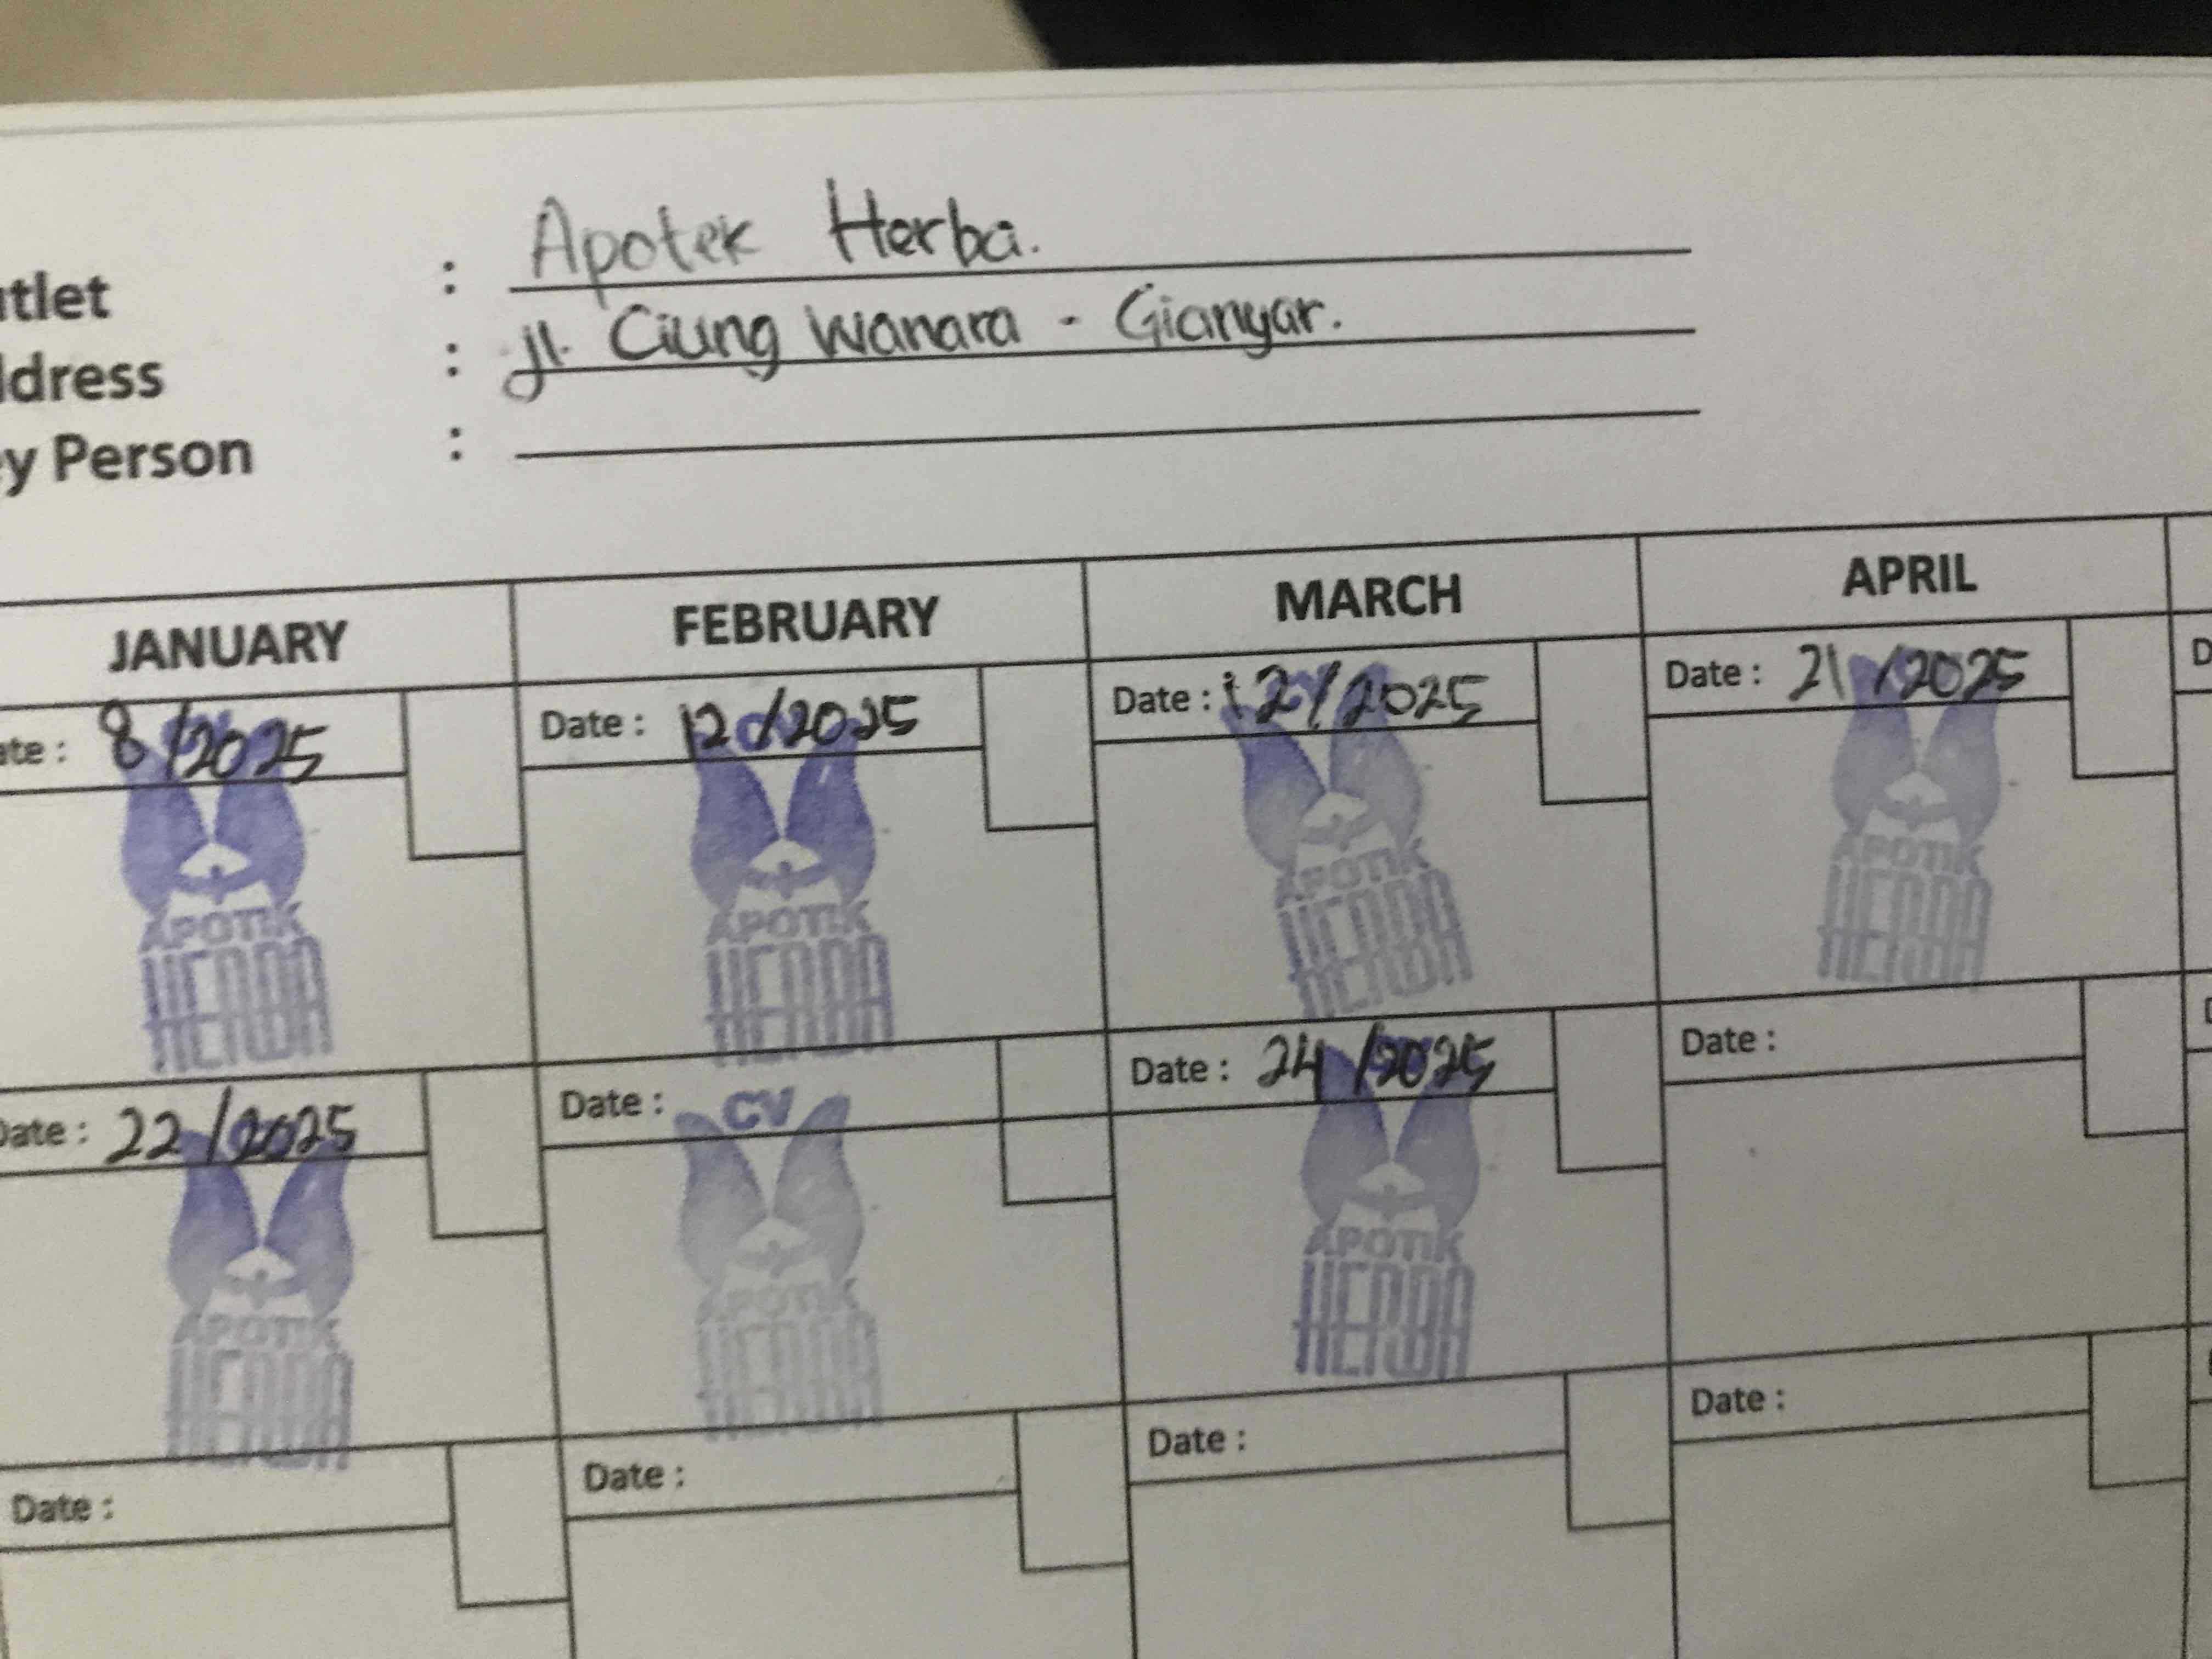 utlet : Apotek Herba.
ddress : Jl. Ciung Wanara - Gianyar.
ey Person :
JANUARY FEBRUARY MARCH APRIL
ate : 8/2025 Date : 12/2025 Date : 12/2025 Date : 21/2025
APOTIK APOTIK APOTIK APOTIK
HERBA HERBA HERBA HERBA
Date : 22/2025 Date : Date : 24/2025 Date :
CV
APOTIK APOTIK APOTIK
HERBA HERBA HERBA
Date : Date : Date : Date :